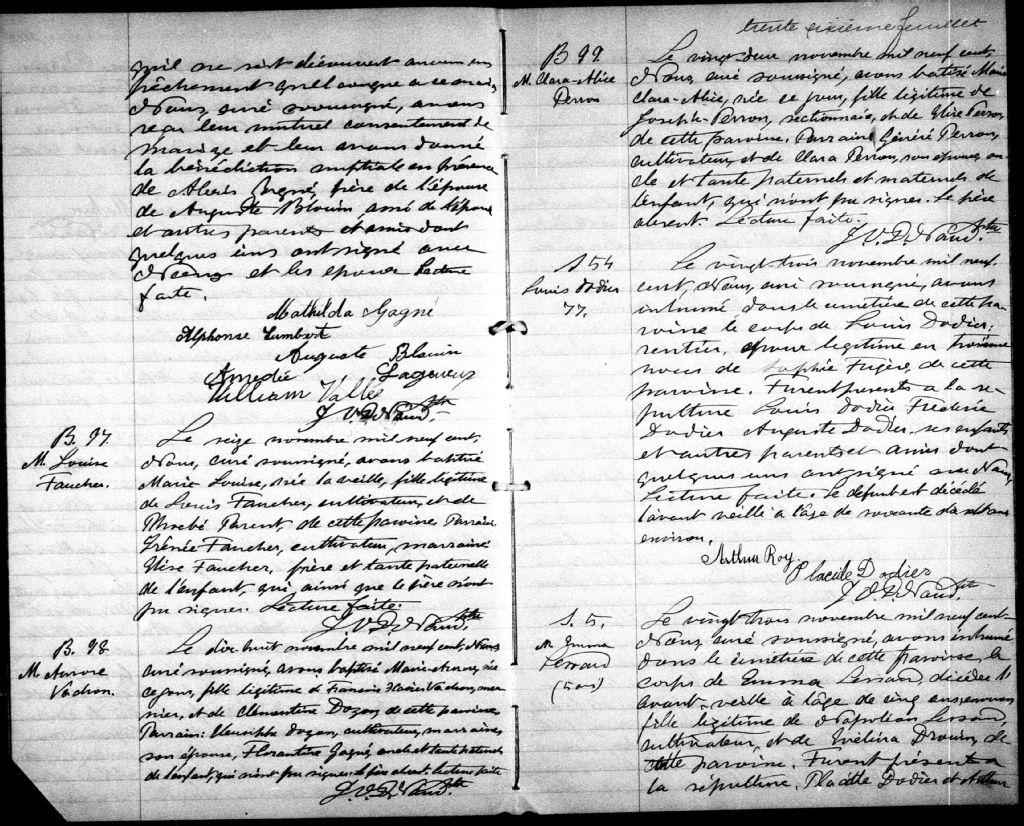 mil ne s'est découvert aucun em
pêchement quelconque à ce mariage,
Nous, curé soussigné, avons
reçu leur mutuel consentement de
mariage et leur avons donné
la bénédiction nuptiale en présence
de Alexis Gagné, frère de l'épouse
de Auguste Blouin, ami de l'époux
et autres parents et amis dont
quelques uns ont signé avec
Nous et les époux Lecture
faite.
Mathilda Gagné
Alphonse Lambert
Auguste Blouin
Amedée Lagueux
William Vallé
J. V. D. Naud. Ptre
B. 97.
M. Louise
Faucher.
Le seize novembre mil neuf cent,
Nous, curé soussigné, avons baptisé
Marie Louise, née la veille, fille légitime
de Louis Faucher, cultivateur, et de
Parent, de cette paroisse. Parrain
Irénée Faucher, cultivateur, marraine
Elise Faucher, frère et tante paternelle
de l'enfant, qui ainsi que le père n'ont
pu signer. Lecture faite.
J. V. D. Naud. Ptre
B. 98
M. Aurore
Vachon.
Le dix huit novembre mil neuf cent, Nous
curé soussigné, avons baptisé Marie Aurore, née
ce jour, fille légitime de François Xavier Vachon,
et de Clementine Doyon, de cette paroisse
Parrain: Doyon, cultivateur, marraine,
son épouse, Florentine Gagné, oncle et tante
de l'enfant, qui n'ont pu signer. Le père absent. Lecture faite
J. V. D. Naud. Ptre
trente sixième feuillet
B 99.
M. Clara-Alice
Perron
Le vingt deux novembre mil neuf cent,
Nous, curé soussigné, avons baptisé Marie
Clara-Alice, née ce jour, fille légitime de
Joseph Perron, sectionnaire, et de Elise Perron,
de cette paroisse. Parrain Perron,
cultivateur, et de Clara Perron, son épouse, on-
cle et tante paternels et maternels de
l'enfant, qui n'ont pu signer. Le père
absent. Lecture faite.
J. V. D. Naud. Ptre
S 54
Louis Dodier
77.
Le vingt trois novembre mil neuf
cent, Nous, curé soussigné, avons
inhumé dans le cimetière de cette pa-
roisse le corps de Louis Dodier,
rentier, époux légitime en troisième
noces de Sophie Fugère, de cette
paroisse. Furent présents à la sé-
pulture Louis Dodier Frederic
Dodier Auguste Dodier. ses enfants
et autres parents et amis dont
quelques uns ont signé avec Nous
Lecture faite. Le defunt est décédé
l'avant veille à l'âge de soixante dix sept ans
environ.
Arthur Roy.
Placide Dodier
J. V. D. Naud. Ptre
S. 5.
M. Emma
Lessard
(5 ans)
Le vingt trois novembre mil neuf cent
Nous, curé soussigné, avons inhumé
dans le cimetière de cette paroisse, le
corps de Emma Lessard, décédée l'
avant-veille à l'âge de cinq ans environ
fille légitime de Napoléon Lessard,
cultivateur, et de Evelina Drouin, de
cette paroisse. Furent présents à
la sépulture, Placide Dodier et Arthur